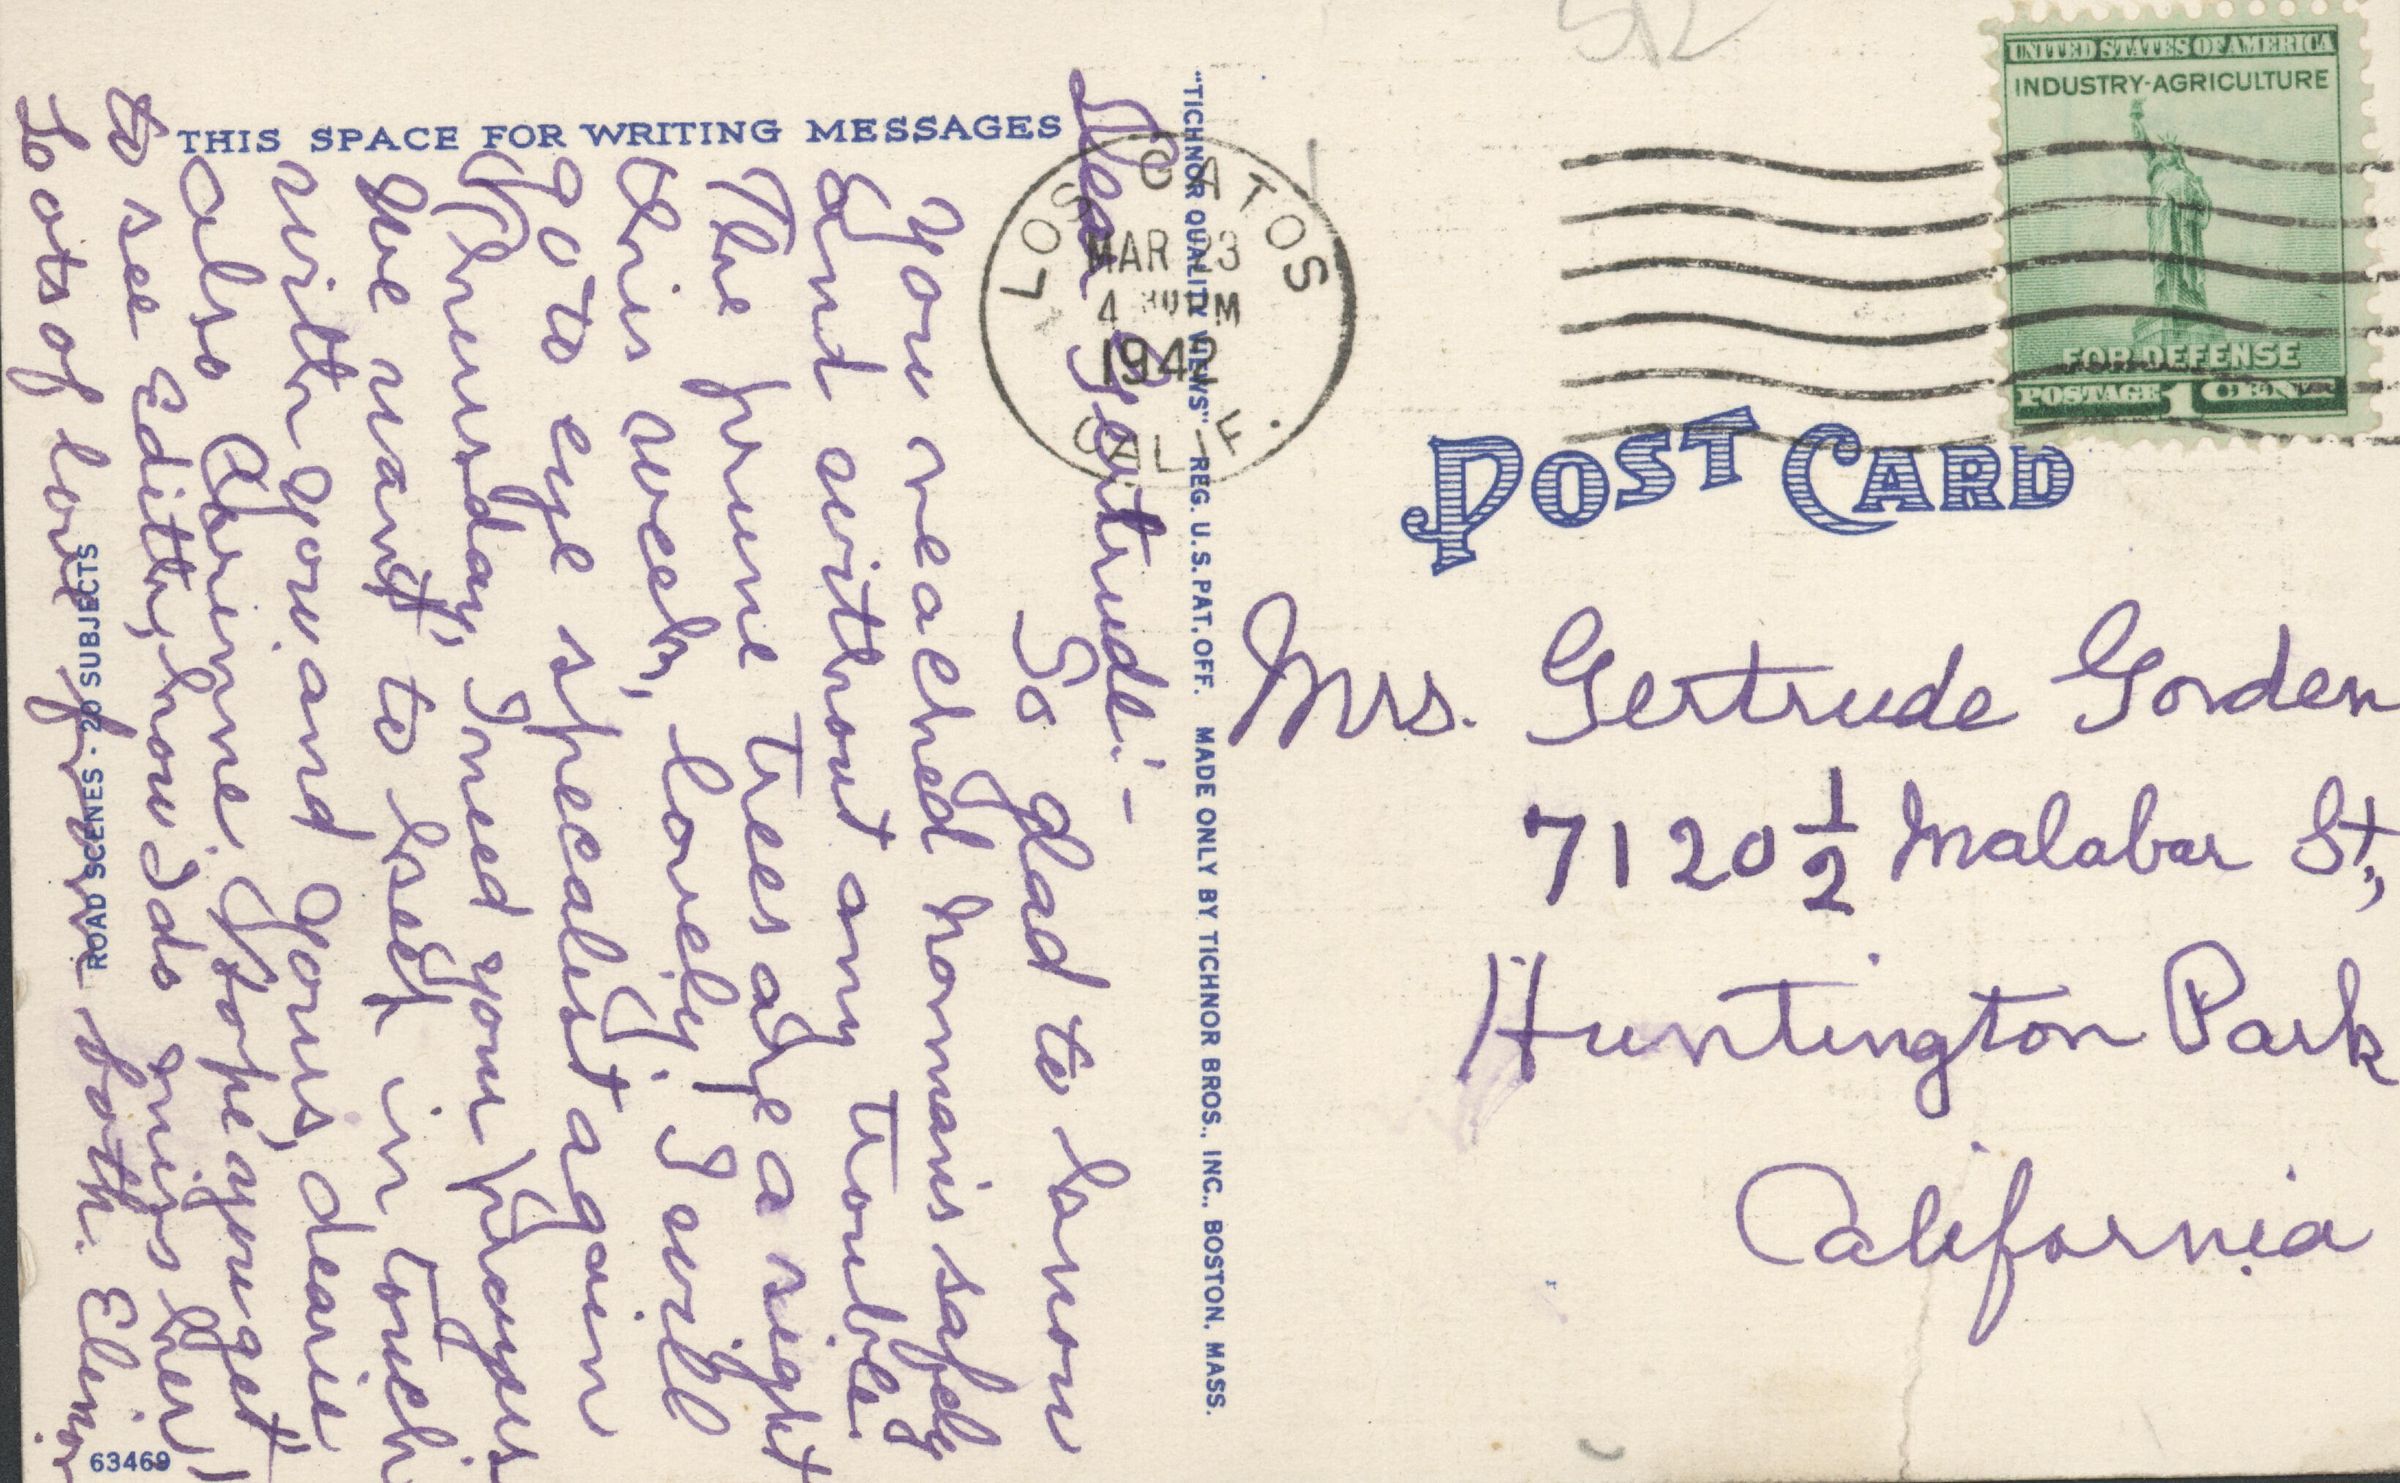 512
UNITED STATES OF AMERICA
INDUSTRY-AGRICULTURE
FOR DEFENSE
POSTAGE 1 CENT
LOS GATOS
MAR 23
4 30 PM
1942
CALIF.
POST CARD
THIS SPACE FOR WRITING MESSAGES
Dear Gertrude:-
So glad to know
you reached home safely
and without any trouble.
The prune trees are a sight
this week, lovely. I will
go to eye specalist again
Thursday, I need your prayers
We want to keep in touch
with you and yours, dearie
also Corinne. Hope you get
to see Edith, how I do miss her!
Lots of love from both. Elinor
"TICHNOR QUALITY VIEWS" REG. U.S. PAT. OFF. MADE ONLY BY TICHNOR BROS., INC., BOSTON, MASS.
ROAD SCENES - 20 SUBJECTS
63469
Mrs. Gertrude Gorden
7120 1/2 Malabar St.,
Huntington Park
California